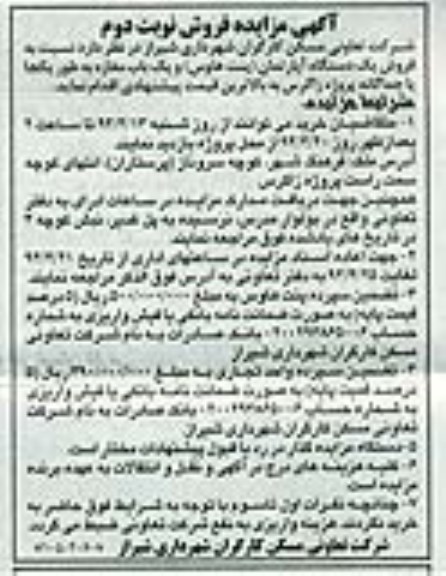 آگهی مزایده فروش نوبت دوم
شرکت تعاونی مسکن کارگران شهرداری شیراز در نظر دارد نسبت به
فروش یک دستگاه آپارتمان (پنت هاوس) و یک باب مغازه به طور یکجا
یا جداگانه پروژه زاگرس به بالاترین قیمت پیشنهادی اقدام نماید.
شرایط مزایده:
۱- متقاضیان خرید می توانند از روز شنبه ۹۲/۲/۱۳ تا ساعت ۲
بعدازظهر روز ۹۲/۲/۲۰ از محل پروژه بازدید نمایند.
آدرس ملک: فرهنگ شهر، کوچه سروناز (پرستاران)، انتهای کوچه
سمت راست پروژه زاگرس
همچنین جهت دریافت مدارک مزایده در ساعات اداری به دفتر
تعاونی واقع در بولوار مدرس، نرسیده به پل غدیر، نبش کوچه ۳
در تاریخ های یادشده فوق مراجعه نمایند.
۲- جهت اعاده اسناد مزایده در ساعتهای اداری از تاریخ
لغایت به دفتر تعاونی به آدرس فوق الذکر مراجعه نمایند.
۳- تضمین سپرده پنت هاوس به مبلغ ریال (۵ درصد
قیمت پایه) به صورت ضمانت نامه بانکی یا فیش واریزی به شماره
حساب بانک صادرات به نام شرکت تعاونی
مسکن کارگران شهرداری شیراز
۴- تضمین سپرده واحد تجاری به مبلغ ریال (۵
درصد قیمت پایه) به صورت ضمانت نامه بانکی یا فیش واریزی
به شماره حساب بانک صادرات به نام شرکت
تعاونی مسکن کارگران شهرداری شیراز.
۵- دستگاه مزایده گذار در رد یا قبول پیشنهادات مختار است.
۶- کلیه هزینه های درج در آگهی و نقل و انتقالات به عهده برنده
مزایده است.
۷- چنانچه نفرات اول تا سوم با توجه به شرایط فوق حاضر به
خرید نگردند، هزینه واریزی به نفع شرکت تعاونی ضبط می گردد.
شرکت تعاونی مسکن کارگران شهرداری شیراز